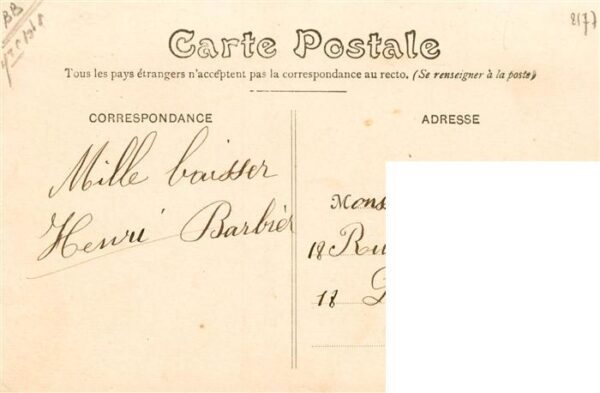 BB
2177
Carte Postale
Tous les pays étrangers n'acceptent pas la correspondance au recto. (Se renseigner à la poste)
CORRESPONDANCE
ADRESSE
Mille baisser
Henri Barbier
Mons
18 Ru
18